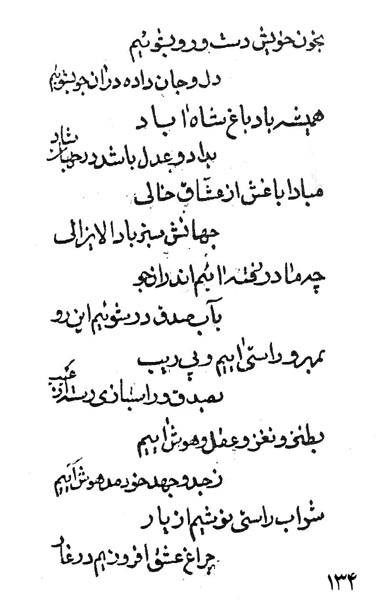 بخون خویش دست و رو بشوئیم
دل و جان داده در آن جو بشوئیم
همیشه باد باغ شاه آباد
بداد و عدل باشد در جهان شاد
مبادا باغش از عشاق خالی
جهانش سبز باد الایزالی
چه ما در نفتہ آئیم اندر
بآب صدق در شوئیم این رو
بمهر و راستی آییم و بی ریب
بصدق و راستبازی رسته از عیب
بطنز و نغز و عقل و هوش آییم
ز جد و جهد خود مدهوش آییم
شراب راستی نوشیم از یار
چراغ عشق افروزیم در غار
۱۳۴